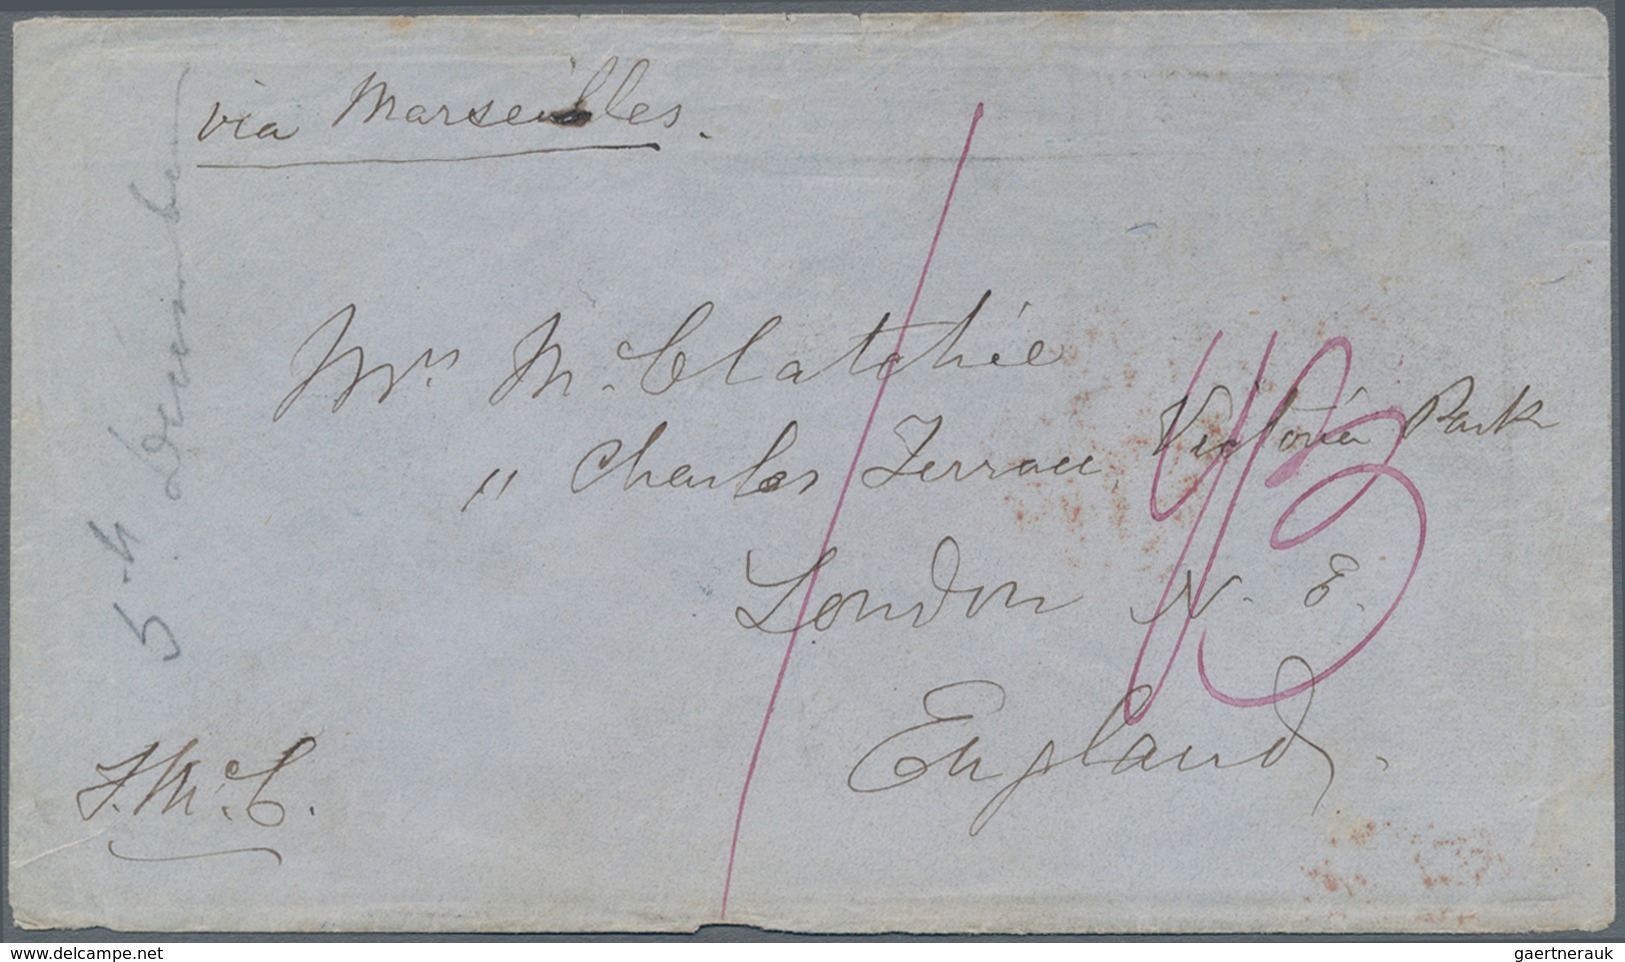 via Marseilles.
5th December
Mrs. McClatchie
11 Charles Terrace, Victoria Park
London N. E.
England.
J. McC.
www.delcampe.net
gaertnerauk